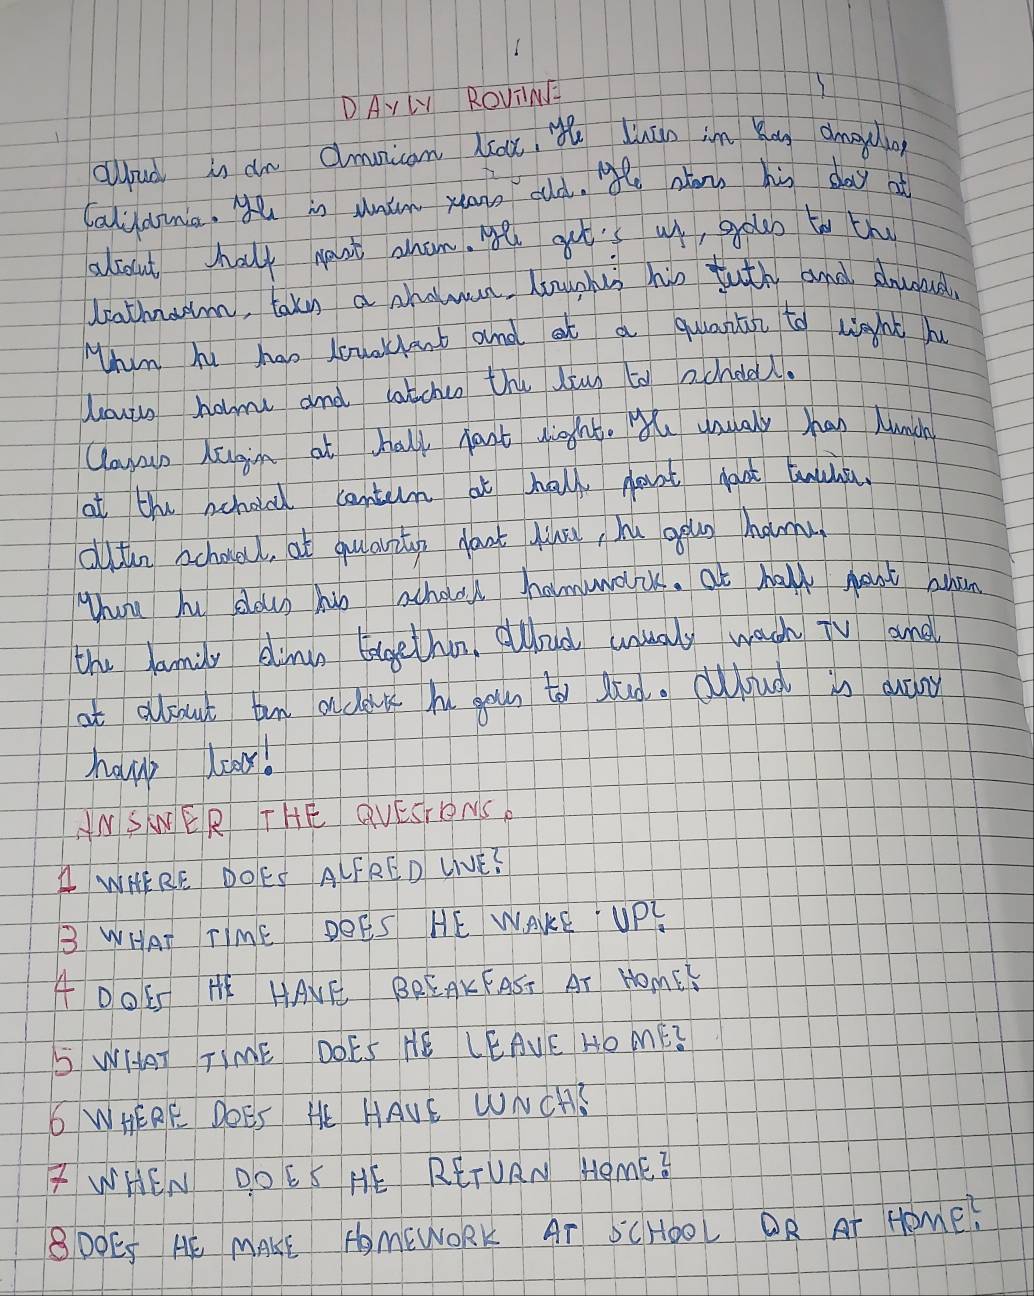 DAYLY ROUTINE
Alfred is an American boy. He lives in Los Angeles
California. He is years old. He stars his day at
about half past seven. He get's up, goes to the
bathroom, takes a shower, brushes his teeth and dressed.
Then he has breakfast and at a quarter to eight he
leaves home and catches the bus to school.
Classes begin at half past eight. He usualy has lunch
at the school canteen at half past past twelve.
After school, at quarter past five, he goes home.
There he does his school homework. At half past seven
the family dines together. Alfred usualy wach TV and
at about ten oclock he goes to bed. Alfred is avery
happy boy!
ANSWER THE QUESTIONS.
1 WHERE DOES ALFRED LIVE?
3 WHAT TIME DOES HE WAKE UP?
4 DOES HE HAVE BREAKFAST AT HOME?
5 WHAT TIME DOES HE LEAVE HOME?
6 WHERE DOES HE HAVE LUNCH?
7 WHEN DOES HE RETURN HOME?
8 DOES HE MAKE HOMEWORK AT SCHOOL OR AT HOME?